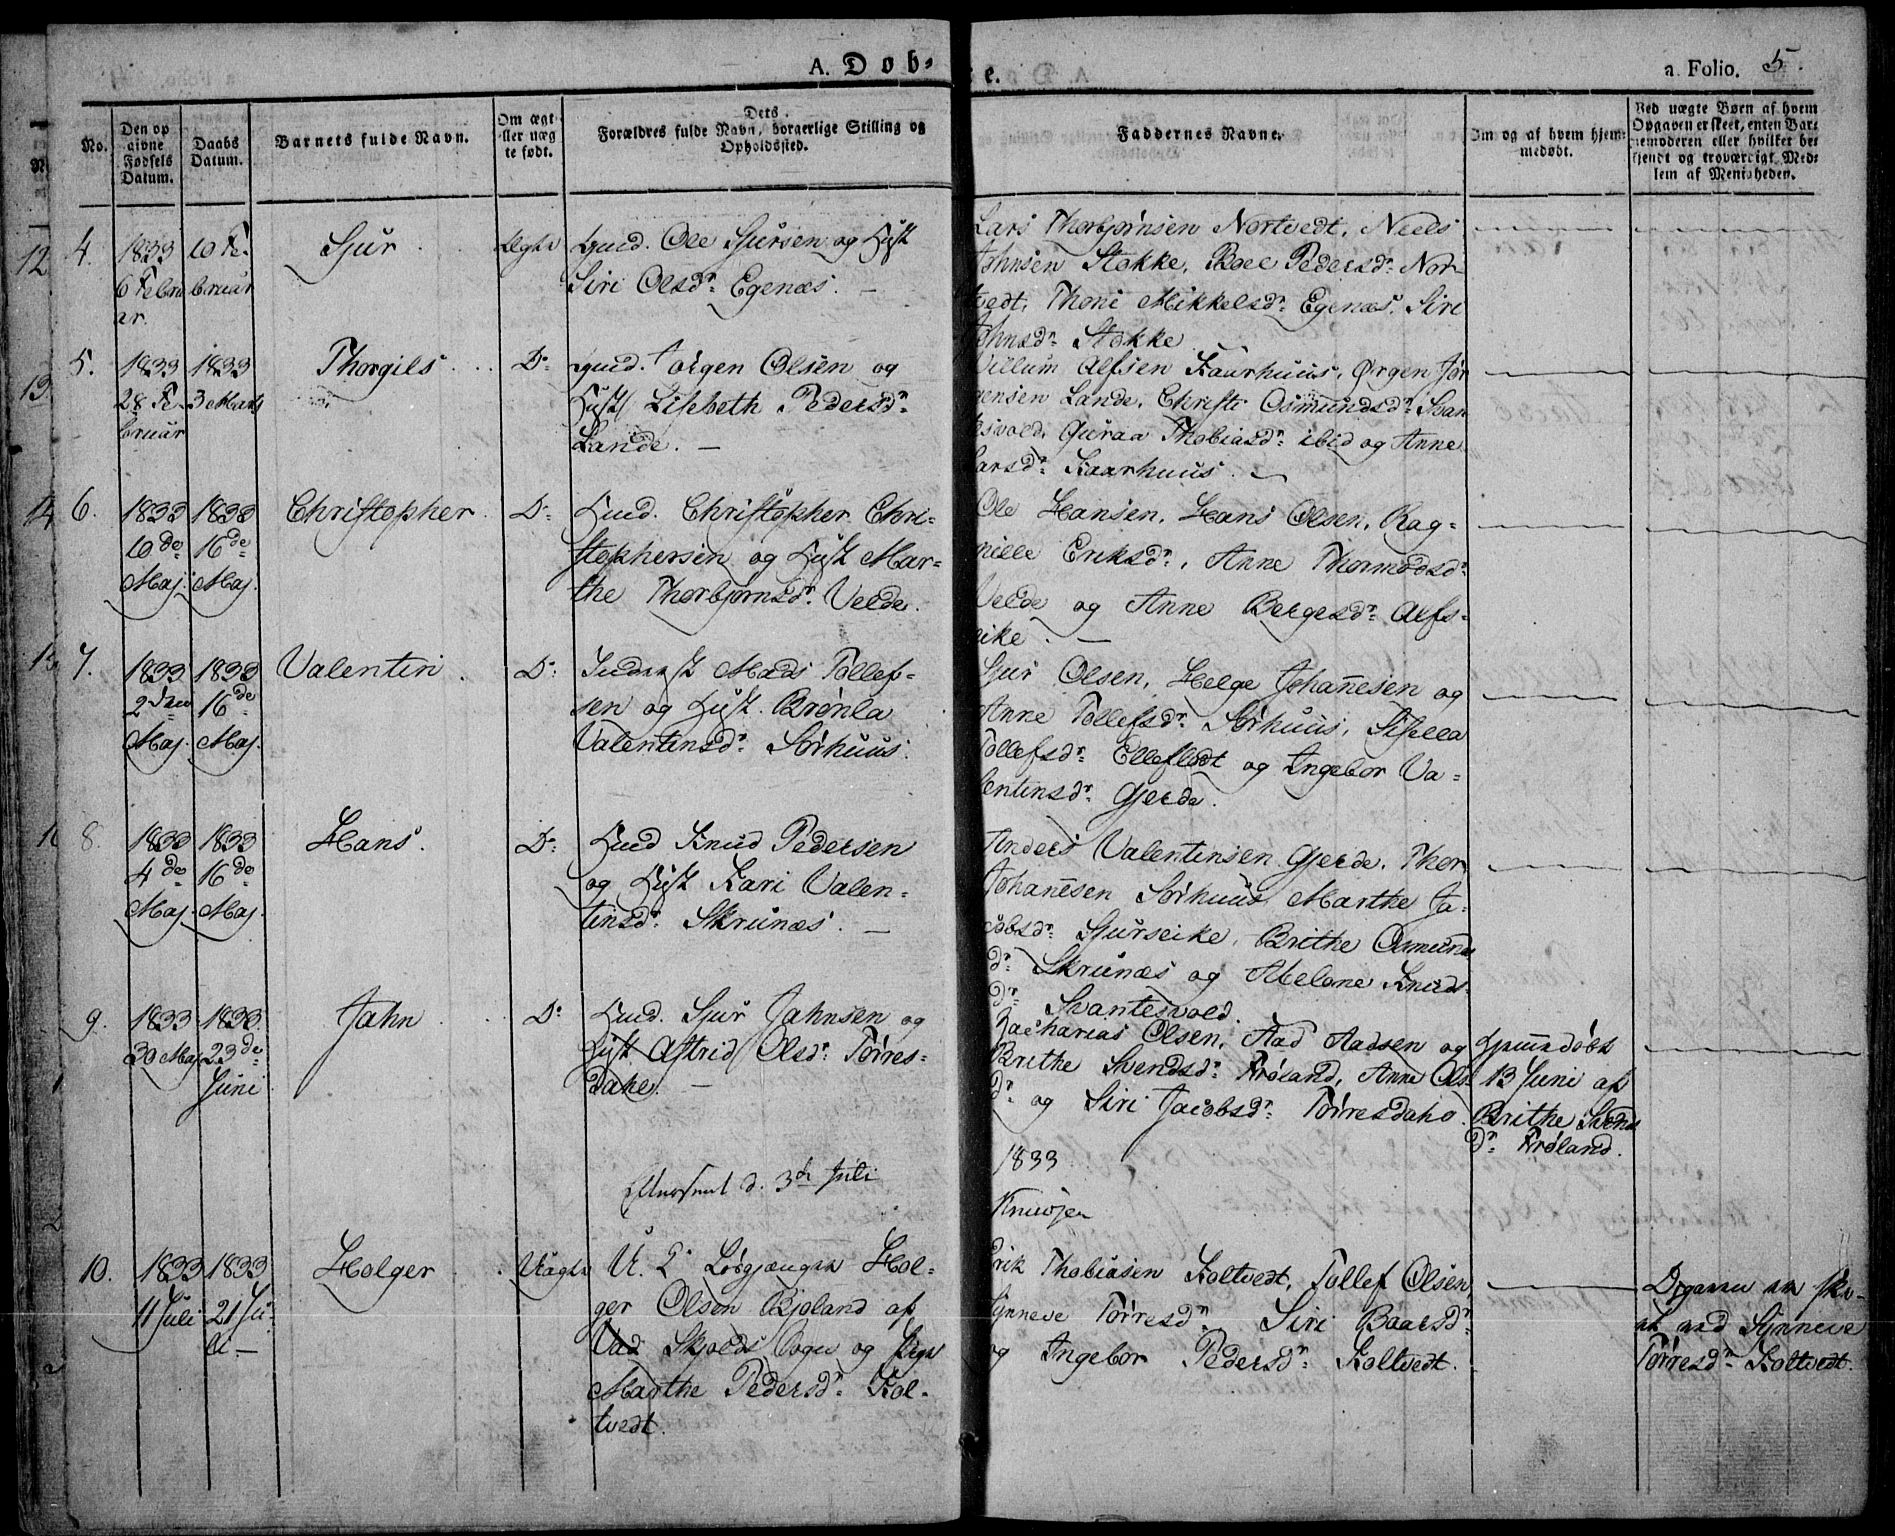 A. Døb=
e.
a. Folio. 5.
No.
Den op
givne
Fødsels
Datum.
Daabs
Datum.
Barnets fulde Navn.
Om ægt
eller uæg
te født.
Dets
Forældres fulde Navn, borgerlige Stilling og
Opholdssted.
Faddernes Navne.
Om og af hvem hjem=
medøbt.
Ved uægte Børn af hvem
Opgaven er skeet, enten Bar=
nemoderen eller hvilket be=
kjendt og troværdigt Med=
lem af Menigheden.
4.
1833
6 Febru
ar.
10 Fe-
bruar
Sjur
Ægte
Gmd. Ole Sjursen og Hust
Siri Olsdr. Egenæs. —
Lars Thorbjørnsen Nortvedt, Niels
Johnsen Stokke, Roel Pedersdr. Nor-
tvedt, Thoni Mikkelsdr. Egenæs, Siri
Johnsdr. Stokke
5.
1833
28 Fe-
bruar
1833
3 Marts
Thorgils
Do.
Gmd. Torgen Olsen og
Hust Lisebeth Pedersdr.
Lande. —
Villum Alfsen Kaarhuus, Ørgen Jør
gensen Lande, Christi Osmundsdr. Svan
tesvold, Guraa Thobiasdr. ibid og Anne
Larsdr. Kaarhuus.
6.
1833
10de
Maj.
1833
16de
Maj.
Christopher
Do.
Huud. Christopher Chri-
stophersen og Hust Mar=
the Thorbjørnsdr. Velde.
Ole Hansen, Hans Olsen, Rag=
nille Eriksdr., Anne Thormodsdr.
Velde og Anne Bergesdr. Alfs-
eike. —
7.
1833
2den
Maj.
1833
16de
Maj.
Valentin
Do.
Inderst Mads Tollef=
sen og Hust. Brønla
Valentinsdr. Sørhuus.
Sjur Olsen, Helge Johannesen og
Anne Tollefsdr. Sørhuus, Sissela
Tollefsdr. Elleflodt og Ingebor Va=
lentinsdr. Gjerde.
8.
1833
4de
Maj.
1833
16de
Maj.
Hans.
Do.
Huud Knud Pedersen
og Hust Kari Valen-
tinsdr. Skrunæs. —
Anders Valentinsen Gjerde, Thor
Johannesen Sørhuus, Marthe Ja-
cobsdr. Sjurseike, Brithe Osmunds
dr. Skrunæs og Melene Knuds-
dr. Svantesvold.
9.
1833
30 Maj
1833.
23de
Juni
Jahn
Do.
Huud. Sjur Jahnsen og
Hust Astrid Olsdr. Tørres-
dahe. —
Zacharias Olsen, Aad Aadsen og
Brithe Svendsdr. Frøland, Anne Ols
dr. og Siri Jacobsdr. Tørresdahe.
Hjemmedøbt
13 Juni af
Brithe Svends
dr. Frøland.
Efterseet d. 3de Juli
1833
Knudsen
10.
1833
11 Juli
1833
21 Ju-
li —
Holger
Uægte
U. Løsgjænger Hol-
ger Olsen Bjoland af
Vad Skjolds Sogn og Pige
Marthe Pedersdr. Kol-
tvedt.
Erik Thobiasen Koltvedt, Tollef Olsen,
Synneve Tørresdr. Siri Baarsdr.
og Ingebor Pedersdr. Koltvedt.
Opgaven er ske-
et ved Synneve
Tørresdr. Koltvedt.